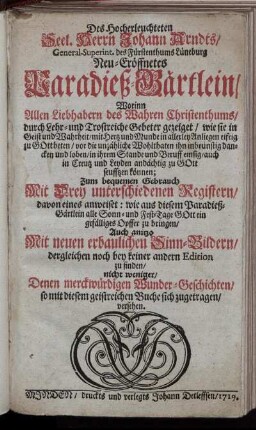 Des Hocherleuchteten
Seel. Herrn Johann Arndts/
General-Superint. des Fürstenthums Lüneburg
Neu-Eröffnetes
Paradieß-Gärtlein/
Worinn
Allen Liebhabern des Wahren Christenthums/
durch Lehr- und Trostreiche Gebeter gezeiget / wie sie in
Geist und Wahrheit/ mit Hertz und Munde in allerley Anliegen eifrig
zu GOtt beten / vor die unzähliche Wohlthaten ihm inbrünstig dan-
cken und loben/ in ihrem Stande und Beruff emsig/ auch
in Creutz und Leyden andächtig zu GOtt
seufftzen können;
Zum bequemen Gebrauch
Mit Drey unterschiedenen Registern/
davon eines anweiset: wie aus diesem Paradieß-
Gärtlein alle Sonn- und Fest-Tage GOtt ein
gefälliges Opffer zu bringen/
Auch
Mit neuen erbaulichen Sinn-Bildern/
dergleichen noch bey keiner andern Edition
zu finden/
nicht weniger/
Denen merckwürdigen Wunder-Geschichten/
so mit diesem geistreichen Buche sich zugetragen/
versehen.
MINDEN/ druckts und verlegts Johann Detleffsen/ 1719.